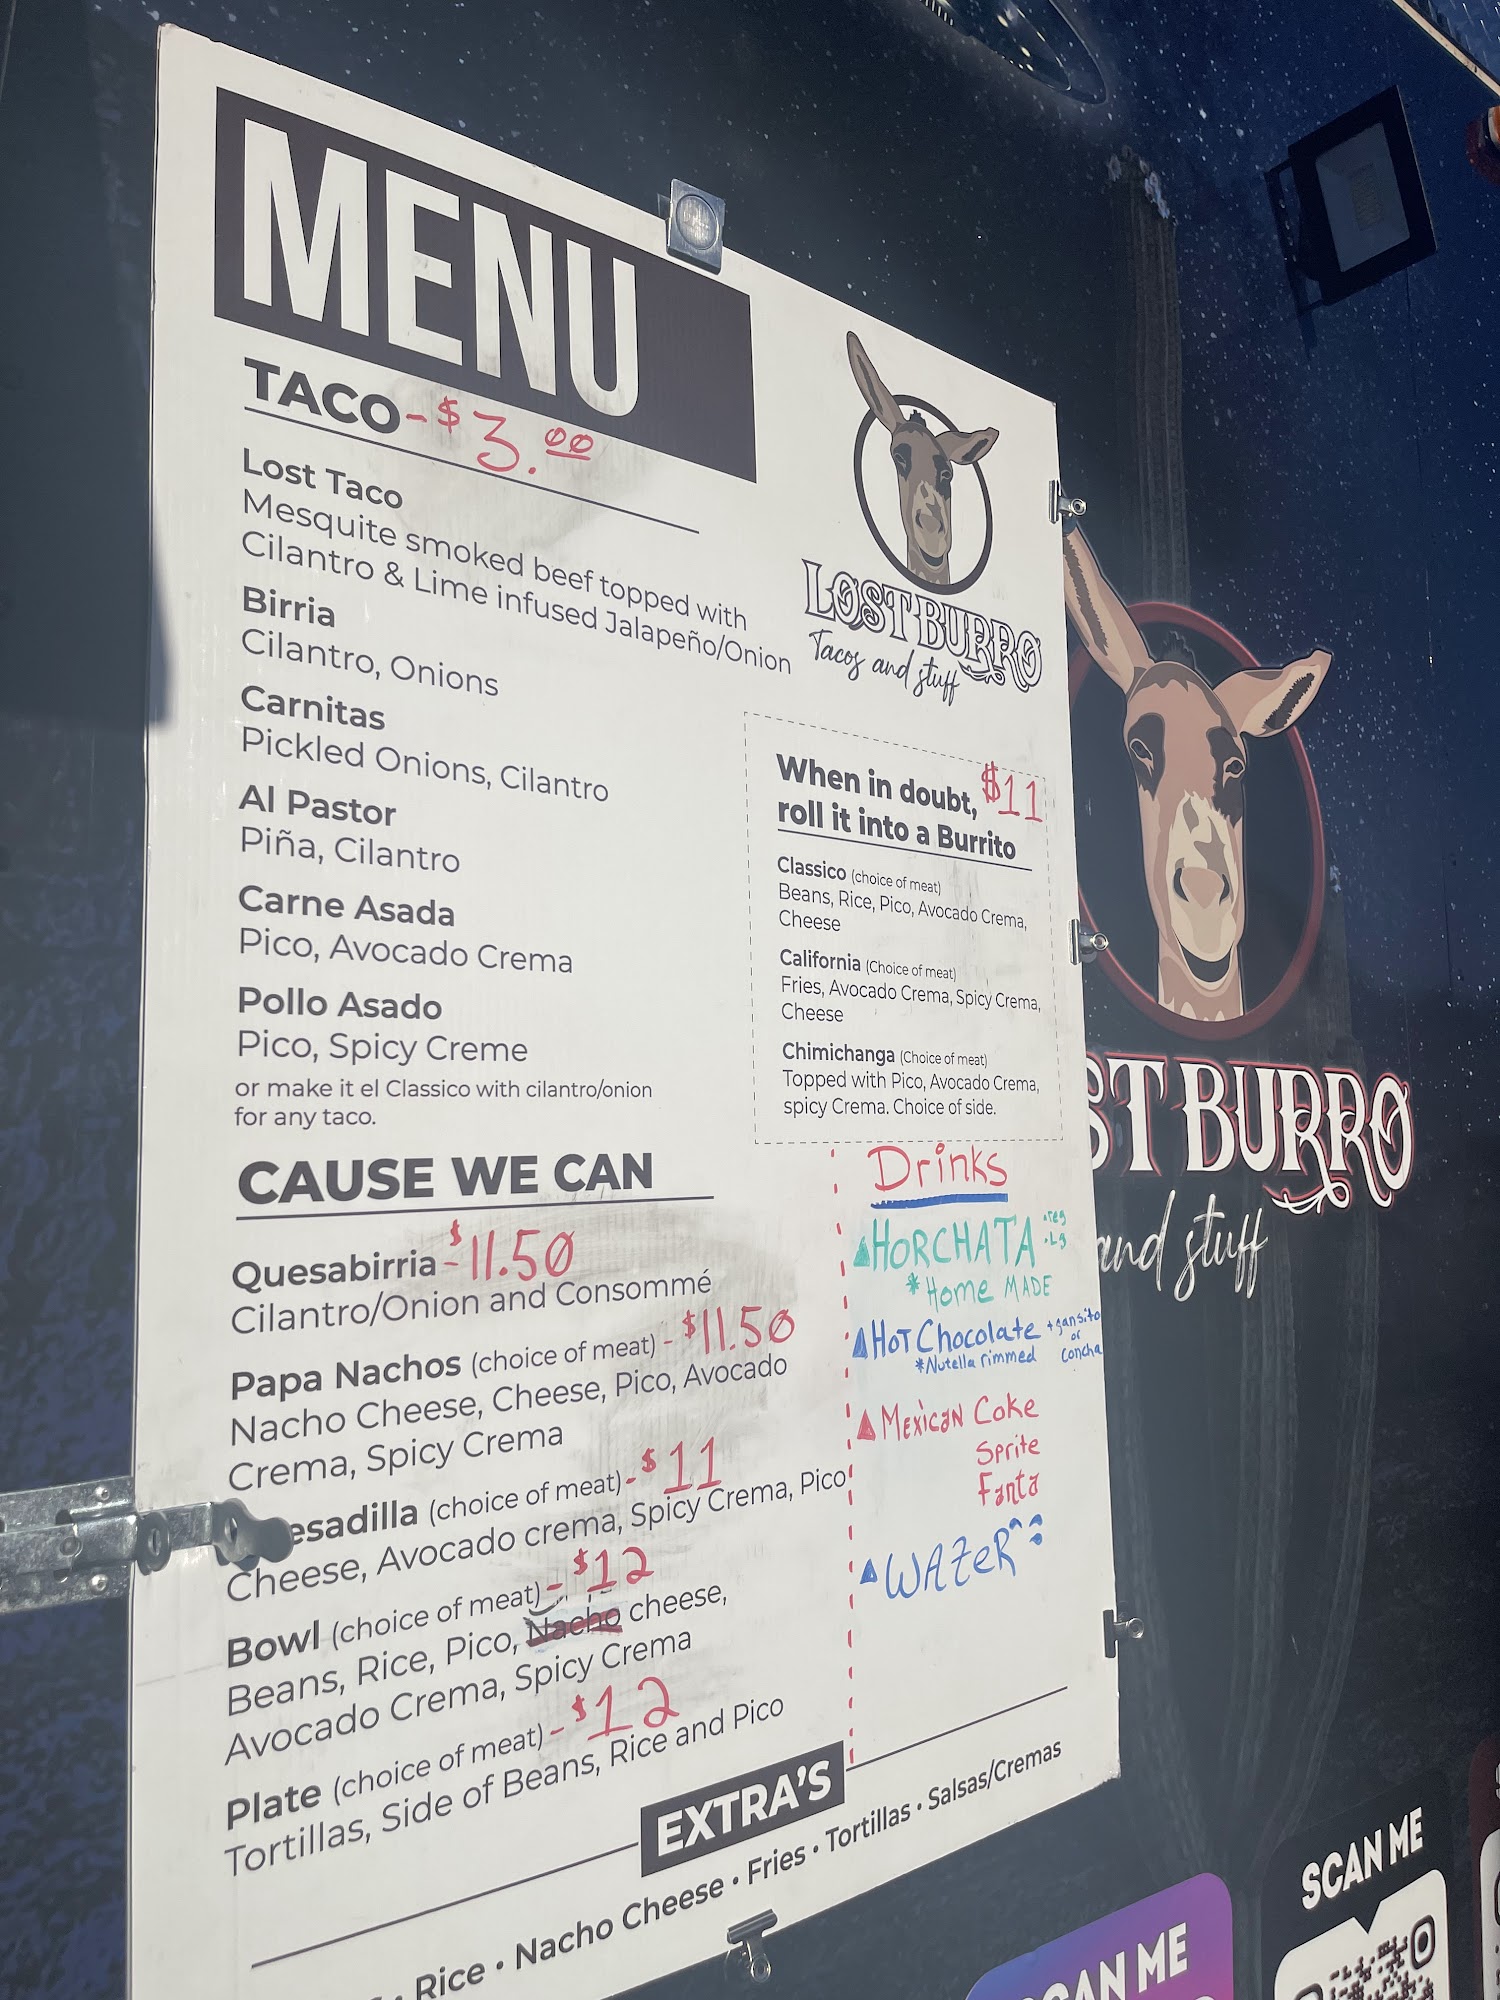 MENU
TACO-$3.00
Lost Taco
Mesquite smoked beef topped with
Cilantro & Lime infused Jalapeño/Onion
Birria
Cilantro, Onions
Carnitas
Pickled Onions, Cilantro
Al Pastor
Piña, Cilantro
Carne Asada
Pico, Avocado Crema
Pollo Asado
Pico, Spicy Creme
or make it el Classico with cilantro/onion
for any taco.
CAUSE WE CAN
Quesabirria-$11.50
Cilantro/Onion and Consommé
Papa Nachos (choice of meat)-$11.50
Nacho Cheese, Cheese, Pico, Avocado
Crema, Spicy Crema
esadilla (choice of meat)-$11
Cheese, Avocado crema, Spicy Crema, Pico
Bowl (choice of meat)-$12
Beans, Rice, Pico, Nacho cheese,
Avocado Crema, Spicy Crema
Plate (choice of meat)-$12
Tortillas, Side of Beans, Rice and Pico
LOST BURRO
Tacos and stuff
When in doubt, $11
roll it into a Burrito
Classico (choice of meat)
Beans, Rice, Pico, Avocado Crema,
Cheese
California (Choice of meat)
Fries, Avocado Crema, Spicy Crema,
Cheese
Chimichanga (Choice of meat)
Topped with Pico, Avocado Crema,
spicy Crema. Choice of side.
Drinks
HORCHATA •reg
•Lg
*Home MADE
HOT Chocolate +gansito
or
*Nutella rimmed concha
MEXICAN Coke
Sprite
Fanta
WATER
EXTRA'S
• Rice • Nacho Cheese • Fries • Tortillas • Salsas/Cremas
ST BURRO
and stuff
SCAN ME
SCAN ME